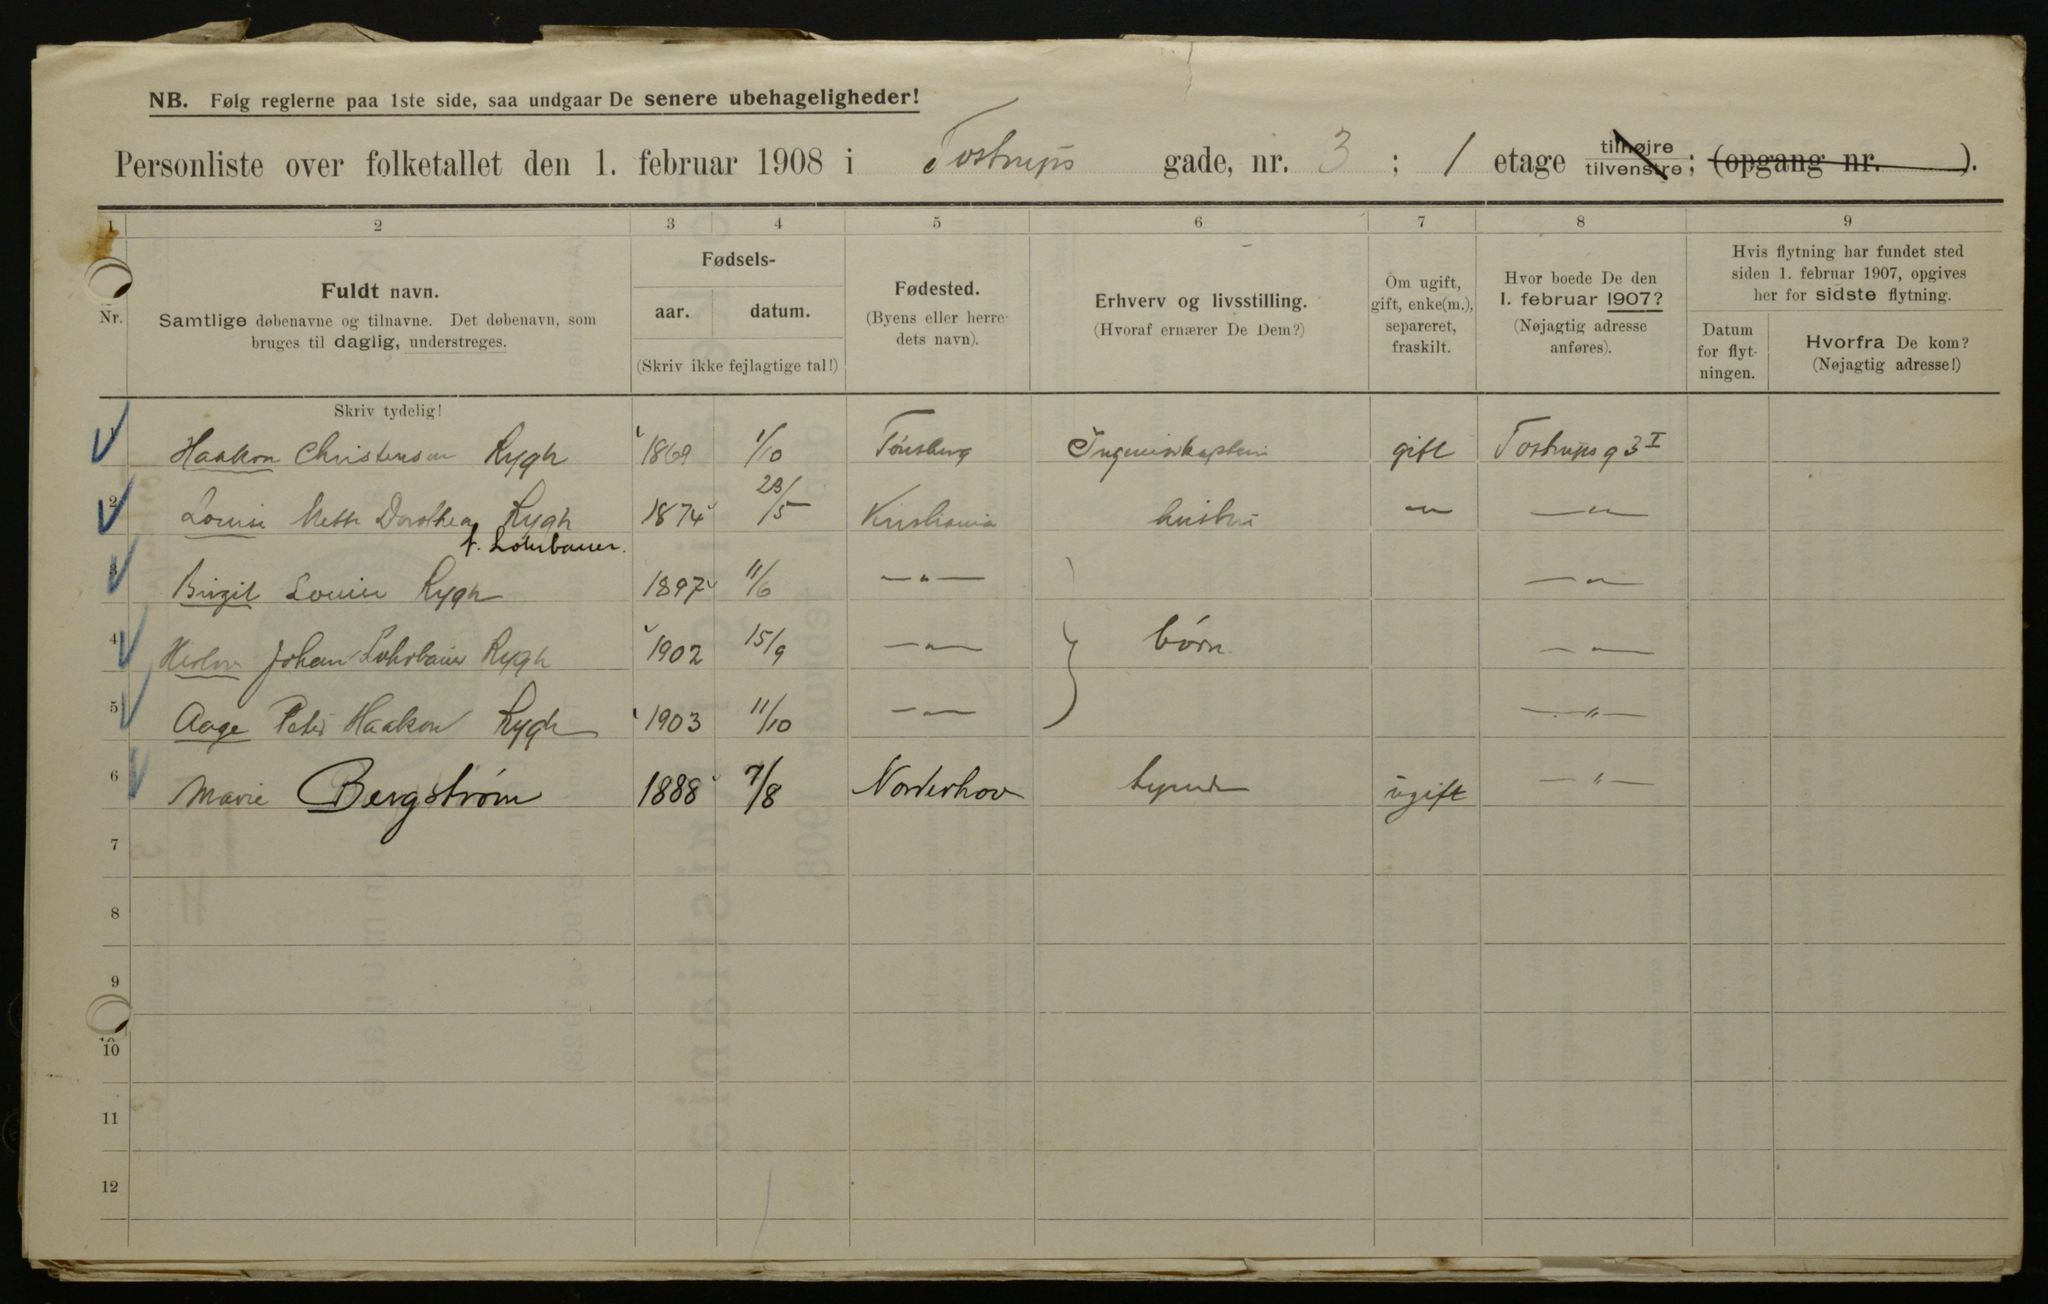 NB. Følg reglerne paa 1ste side, saa undgaar De senere ubehageligheder!
Personliste over folketallet den 1. februar 1908 i Tostrups gade, nr. 3 ; 1 etage tilhøjre tilvenstre ; (opgang nr. ).
1 2 3 4 5 6 7 8 9
Nr.
Fuldt navn.
Samtlige døbenavne og tilnavne. Det døbenavn, som
bruges til daglig, understreges.
Skriv tydelig!
Fødsels-
aar. datum.
(Skriv ikke fejlagtige tal!)
Fødested.
(Byens eller herre-
dets navn).
Erhverv og livsstilling.
(Hvoraf ernærer De Dem?)
Om ugift,
gift, enke(m.),
separeret,
fraskilt.
Hvor boede De den
1. februar 1907?
(Nøjagtig adresse
anføres).
Hvis flytning har fundet sted
siden 1. februar 1907, opgives
her for sidste flytning.
Datum
for flyt-
ningen.
Hvorfra De kom?
(Nøjagtig adresse!)
1 Haakon Christensen Rygh 1869 1/10 Tönsberg Ingeniörkaptein gift Tostrups g 3 I
2 Louise Mette Dorothea Rygh 1874 23/5 Kristiania hustru — " — — " —
f. Lohrbauer.
3 Birgit Louise Rygh 1897 11/6 — " — — " —
4 Johan Lohrbauer Rygh 1902 15/9 — " — børn — " —
5 Aage Peter Haakon Rygh 1903 11/10 — " — — " —
6 Marie Bergstrøm 1888 7/8 Norderhov ugift — " —
7
8
9
10
11
12